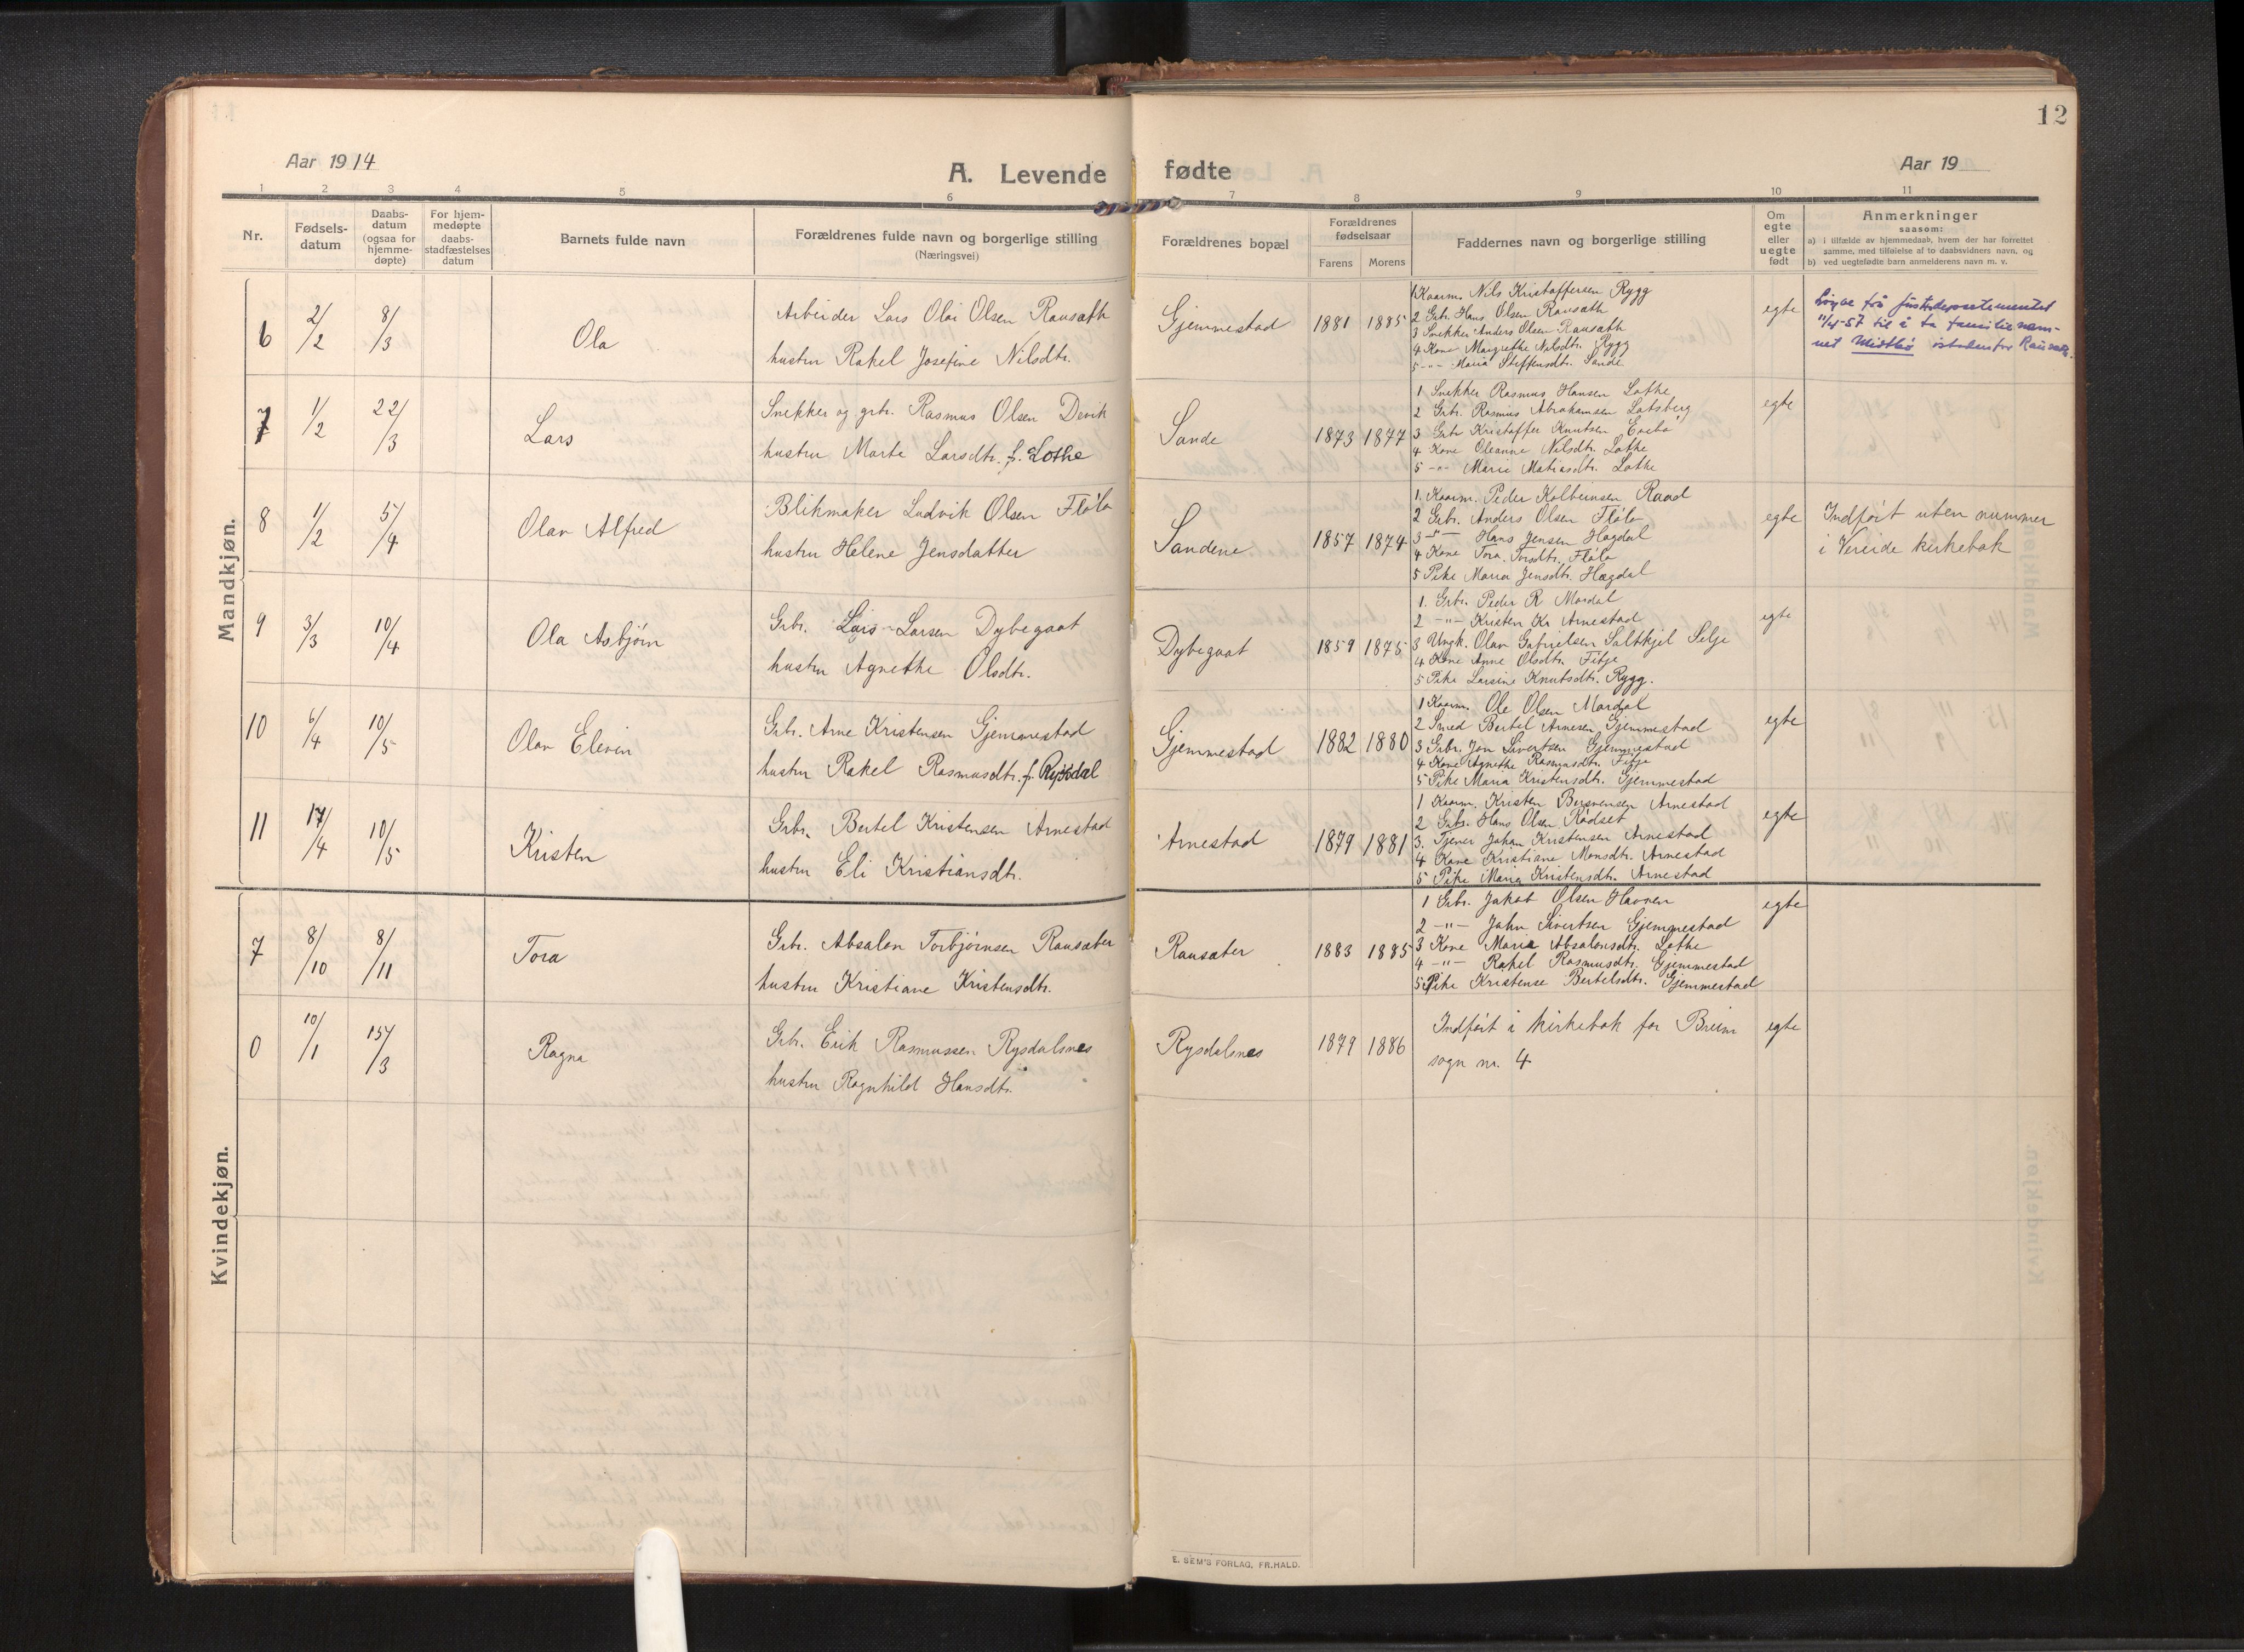 12
Aar 1914
A. Levende fødte
Aar 19
1 2 3 4 5 6 7 8 9 10 11
Nr.
Fødsels-
datum
Daabs-
datum
(ogsaa for
hjemme-
døpte)
For hjem-
medøpte
daabs-
stadfæstelses
datum
Barnets fulde navn
Forældrenes fulde navn og borgerlige stilling
(Næringsvei)
Forældrenes bopæl
Forældrenes
fødselsaar
Farens Morens
Faddernes navn og borgerlige stilling
Om
egte
eller
uegte
født
Anmerkninger
saasom:
a) i tilfælde av hjemmedaab, hvem der har forrettet
samme, med tilføielse af to daabsvidners navn, og
b) ved uegtefødte barn anmelderens navn m. v.
Mandkjøn.
6 2/2 8/3 Ola
Arbeider Lars Olai Olsen Rausath
hustru Rakel Josefine Nilsdtr.
Gjemmestad 1881 1885
1 Kaarm. Nils Kristoffersen Rygg
2 Grbr. Hans Olsen Rausath
3 Snekker Anders Olsen Rausath
4 Kone Margrethe Nilsdtr. Rygg
5 -"- Maria Steffensdtr. Sande
egte
Løyve frå Justisdepartementet
11/4-57 til å ta familienam-
net Midtbø istadenfor
7 1/2 22/3 Lars
Snekker og grbr. Rasmus Olsen Devik
hustru Marte Larsdtr. f. Lothe
Sande 1873 1877
1 Snekker Rasmus Hansen Lothe
2 Grbr. Rasmus Abrahamsen Lotsberg
3 Grbr Kristoffer Knutsen Evebø
4 Kone Oleanne Nilsdtr. Lothe
5 -"- Marie Matiasdtr. Lothe
egte
8 1/2 5/4 Olav Alfred
Blikmaker Ludvik Olsen Fløla
hustru Helene Jensdatter
Sandene 1857 1874
1. Kaarm. Peder Kolbeinsen Raad
2 Grbr. Anders Olsen Fløla
3 -"- Hans Jensen Hagdal
4 Kone Tora Torsdtr. Fløla
5 Pike Maria Jensdtr. Hagdal
egte
Indført uten nummer
i Vereide kirkebok
9 3/3 10/4 Ola Asbjørn
Grbr. Lars Larsen Dybegaat
hustru Agnethe Olsdtr.
Dybegaat 1859 1875
1. Grbr. Peder R. Mardal
2 -"- Kristen Kr Arnestad
3 Ungk. Olav Gabrielsen Saltkjel Selje
4 Kone Anne Olsdtr. Fitje
5 Pike Larsine Knutsdtr. Rygg.
egte
10 6/4 10/5 Olav Eleven
Grbr. Arne Kristensen Gjemmestad
hustru Rakel Rasmusdtr. f. Rysdal
Gjemmestad 1882 1880
1 Kaarm. Ole Olsen Mardal
2 Smed Bertel Arnesen Gjemmestad
3 Grbr. Jon Sivertsen Gjemmestad
4 Kone Agnethe Rasmusdtr. Fitje
5 Pike Maria Kristensdtr. Gjemmestad
egte
11 17/4 10/5 Kristen
Grbr. Bertel Kristensen Arnestad
hustru Eli Kristiansdtr.
Arnestad 1879 1881
1 Kaarm. Kristen Arnestad
2 Grbr. Hans Olsen Rødset
3. Tjener Johan Kristensen Arnestad
4 Kone Kristiane Monsdtr. Arnestad
5 Pike Maria Kristensdtr. Arnestad
egte
Kvindekjøn.
7 8/10 8/11 Tora
Grbr. Absalon Torbjørnsen Rausæter
hustru Kristiane Kristensdtr.
Rausæter 1883 1885
1 Grbr. Jakob Olsen Havnen
2 -"- John Sivertsen Gjemmestad
3 Kone Maria Absalonsdtr. Lothe
4 -"- Rakel Rasmusdtr. Gjemmestad
5 Pike Kristense Bertelsdtr. Gjemmestad
egte
0 10/1 15/3 Ragna
Grbr. Erik Rasmussen Rysdalsnes
hustru Ragnhild Hansdtr.
Rysdalsnes 1879 1886
Indført i kirkebok for Breim
sogn nr. 4
egte
E. SEM'S FORLAG, FR.HALD.